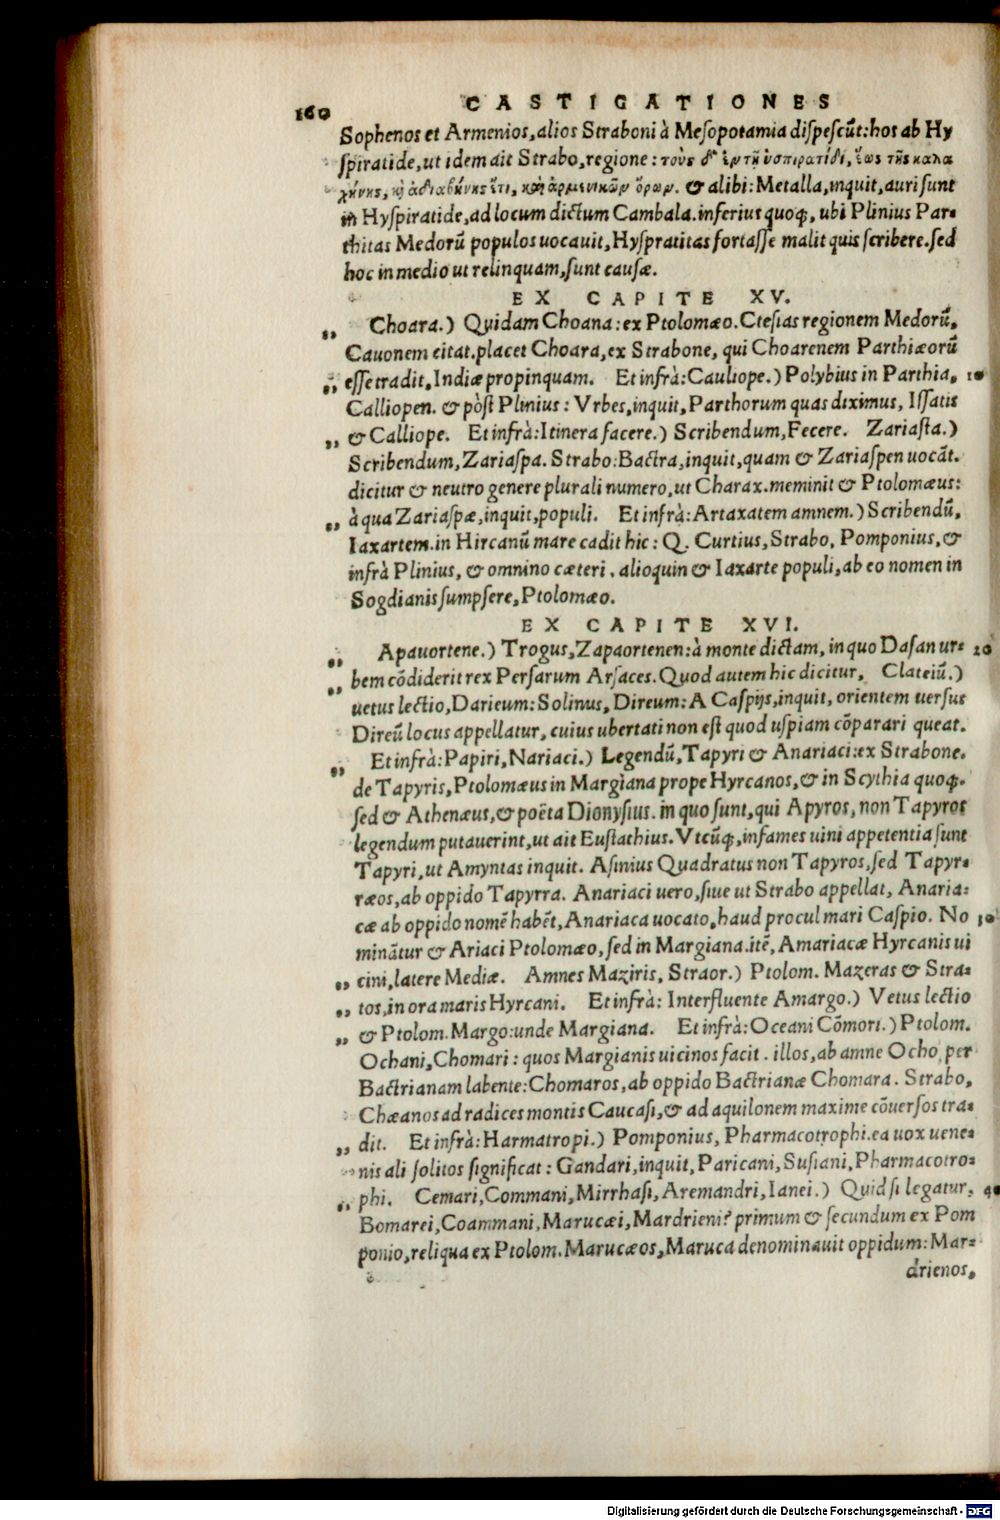 160 CASTIGATIONES
Sophenos et Armenios, alios Straboni à Mesopotamia dispescūt: hos ab Hy
spiratide, ut idem ait Strabo, regione: τοὺς δ' ἐν τῇ ὑσπιρατίδι, ἕως τῆς καλα
χήνης, κỳ ἀδιαβήνης ἔτι, καὶ ἀρμενικῶν ὅρων. & alibi: Metalla, inquit, auri sunt
in Hyspiratide, ad locum dictum Cambala. inferius quoq;, ubi Plinius Par-
thitas Medorū populos uocauit, Hyspratitas fortasse malit quis scribere. sed
hoc in medio ut relinquam, sunt causæ.
EX CAPITE XV.
„ Choara.) Quidam Choana: ex Ptolomæo. Ctesias regionem Medorū,
Cauonem citat. placet Choara, ex Strabone, qui Choarenem Parthiæorū
„ esse tradit, Indiæ propinquam. Et infrà: Cauliope.) Polybius in Parthia, 10
Calliopen. & pòst Plinius: Vrbes, inquit, Parthorum quas diximus, Issatis
„ & Calliope. Et infrà: Itinera facere.) Scribendum, Fecere. Zariasta.)
Scribendum, Zariaspa. Strabo: Bactra, inquit, quam & Zariaspen uocāt.
dicitur & neutro genere plurali numero, ut Charax. meminit & Ptolomæus:
„ à qua Zariaspæ, inquit, populi. Et infrà: Artaxatem amnem.) Scribendū,
Iaxartem. in Hircanū mare cadit hic: Q. Curtius, Strabo, Pomponius, &
infrà Plinius, & omnino cæteri. alioquin & Iaxarte populi, ab eo nomen in
Sogdianis sumpsere, Ptolomæo.
EX CAPITE XVI.
„ Apauortene.) Trogus, Zapaortenen: à monte dictam, in quo Dasan ur- 20
bem cōdiderit rex Persarum Arsaces. Quod autem hic dicitur, Clateiū.)
„ uetus lectio, Darieum: Solinus, Direum: A Caspijs, inquit, orientem uersus
Direū locus appellatur, cuius ubertati non est quod uspiam cōparari queat.
„ Et infrà: Papiri, Nariaci.) Legendū, Tapyri & Anariaci: ex Strabone.
de Tapyris, Ptolomæus in Margiana prope Hyrcanos, & in Scythia quoq;.
sed & Athenæus, & poëta Dionysius. in quo sunt, qui Apyros, non Tapyros
legendum putauerint, ut ait Eustathius. Vtcūq;, infames uini appetentia sunt
Tapyri, ut Amyntas inquit. Asinius Quadratus non Tapyros, sed Tapyr-
ræos, ab oppido Tapyrra. Anariaci uero, siue ut Strabo appellat, Anaria-
cæ ab oppido nomē habēt, Anariaca uocato, haud procul mari Caspio. No 30
minātur & Ariaci Ptolomæo, sed in Margiana. itē, Amariacæ Hyrcanis ui
„ cini, latere Mediæ. Amnes Maziris, Straor.) Ptolom. Mazeras & Stra-
„ tos, in ora maris Hyrcani. Et infrà: Interfluente Amargo.) Vetus lectio
„ & Ptolom. Margo: unde Margiana. Et infrà: Oceani Cōmori.) Ptolom.
Ochani, Chomari: quos Margianis uicinos facit. illos, ab amne Ocho per
Bactrianam labente: Chomaros, ab oppido Bactrianæ Chomara. Strabo,
Chæanos ad radices montis Caucasi, & ad aquilonem maxime cōuersos tra-
„ dit. Et infrà: Harmatropi.) Pomponius, Pharmacotrophi. ea uox uene-
nis ali solitos significat: Gandari, inquit, Paricani, Susiani, Pharmacotro-
„ phi. Cemari, Commani, Mirrhasi, Aremandri, Ianei.) Quid si legatur, 40
Bomarei, Coammani, Marucæi, Mardrieni? primum & secundum ex Pom
ponio, reliqua ex Ptolom. Marucæos, Maruca denominauit oppidum: Mar-
drienos,
Digitalisierung gefördert durch die Deutsche Forschungsgemeinschaft - DFG